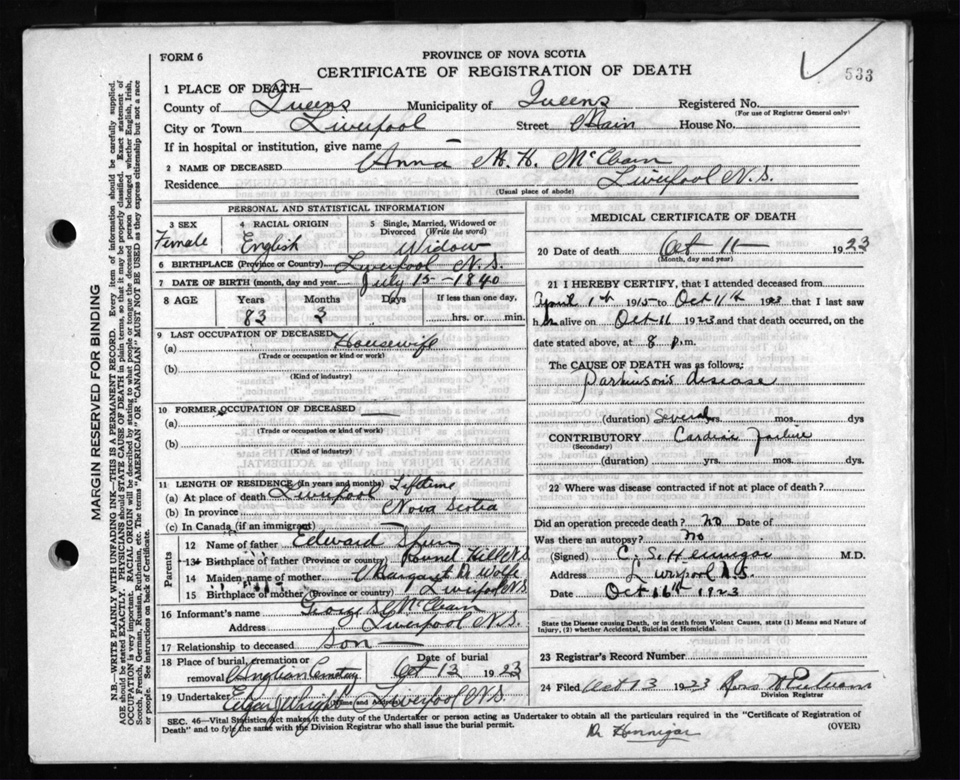 FORM 6
PROVINCE OF NOVA SCOTIA
CERTIFICATE OF REGISTRATION OF DEATH
533
1 PLACE OF DEATH—
County of Queens Municipality of Queens Registered No.
(For use of Registrar General only)
City or Town Liverpool Street Main House No.
If in hospital or institution, give name
2 NAME OF DECEASED Anna M. H. McClearn
Residence Liverpool N.S.
(Usual place of abode)
PERSONAL AND STATISTICAL INFORMATION
3 SEX Female
4 RACIAL ORIGIN English
5 Single, Married, Widowed or Divorced (Write the word) Widow
6 BIRTHPLACE (Province or Country) Liverpool N.S.
7 DATE OF BIRTH (month, day and year) July 15-1840
8 AGE Years Months Days If less than one day,
83 3 hrs. or min.
9 LAST OCCUPATION OF DECEASED
(a) Housewife
(Trade or occupation or kind or work)
(b)
(Kind of industry)
10 FORMER OCCUPATION OF DECEASED —
(a)
(Trade or occupation or kind of work)
(b)
(Kind of industry)
11 LENGTH OF RESIDENCE (In years and months)
(a) At place of death Liverpool Lifetime
(b) In province Nova Scotia
(c) In Canada (if an immigrant)
Parents
12 Name of father Edward Spurr
13 Birthplace of father (Province or country) Round Hill N.S.
14 Maiden name of mother Margaret D. Wolfe
15 Birthplace of mother (Province or country) Liverpool N.S.
16 Informant's name George S. McClearn
Address Liverpool N.S.
17 Relationship to deceased Son
18 Place of burial, cremation or removal Anglian Cemetery Date of burial Oct 13 1923
19 Undertaker Edgar J Wright Liverpool N.S.
(Name and Address)
MEDICAL CERTIFICATE OF DEATH
20 Date of death Oct 11 1923
(Month, day and year)
21 I HEREBY CERTIFY, that I attended deceased from
April 1st 1915 to Oct 11th 1923 that I last saw
her alive on Oct 11 1923 and that death occurred, on the
date stated above, at 8 P.m.
The CAUSE OF DEATH was as follows:
Parkinson's disease
(duration) several yrs. mos. dys
CONTRIBUTORY Cardiac failure
(Secondary)
(duration) yrs. mos. dys.
22 Where was disease contracted if not at place of death?
Did an operation precede death? no Date of
Was there an autopsy? no
(Signed) C. S. Hennigar M.D.
Address Liverpool N.S.
Date Oct 16th 1923
State the Disease causing Death, or in death from Violent Causes, state (1) Means and Nature of Injury, (2) whether Accidental, Suicidal or Homicidal.
23 Registrar's Record Number
24 Filed Oct 13 1923
Division Registrar
SEC. 46—Vital Statistics Act makes it the duty of the Undertaker or person acting as Undertaker to obtain all the particulars required in the "Certificate of Registration of
Death" and to fyle the same with the Division Registrar who shall issue the burial permit. (OVER)
Dr Hennigar
MARGIN RESERVED FOR BINDING
N.B.—WRITE PLAINLY WITH UNFADING INK—THIS IS A PERMANENT RECORD. Every item of information should be carefully supplied.
AGE should be stated EXACTLY. PHYSICIANS should STATE CAUSE OF DEATH in plain terms, so that it may be properly classified. Exact statement of
OCCUPATION is very important. RACIAL ORIGIN will be described by stating to what people or tongue the deceased person belonged whether English, Irish,
Scotch, French, German, Russian, Ruthenian, etc. The terms "AMERICAN" OR "CANADIAN" MUST NOT BE USED as they express citizenship but not a race
or people. See instructions on back of Certificate.